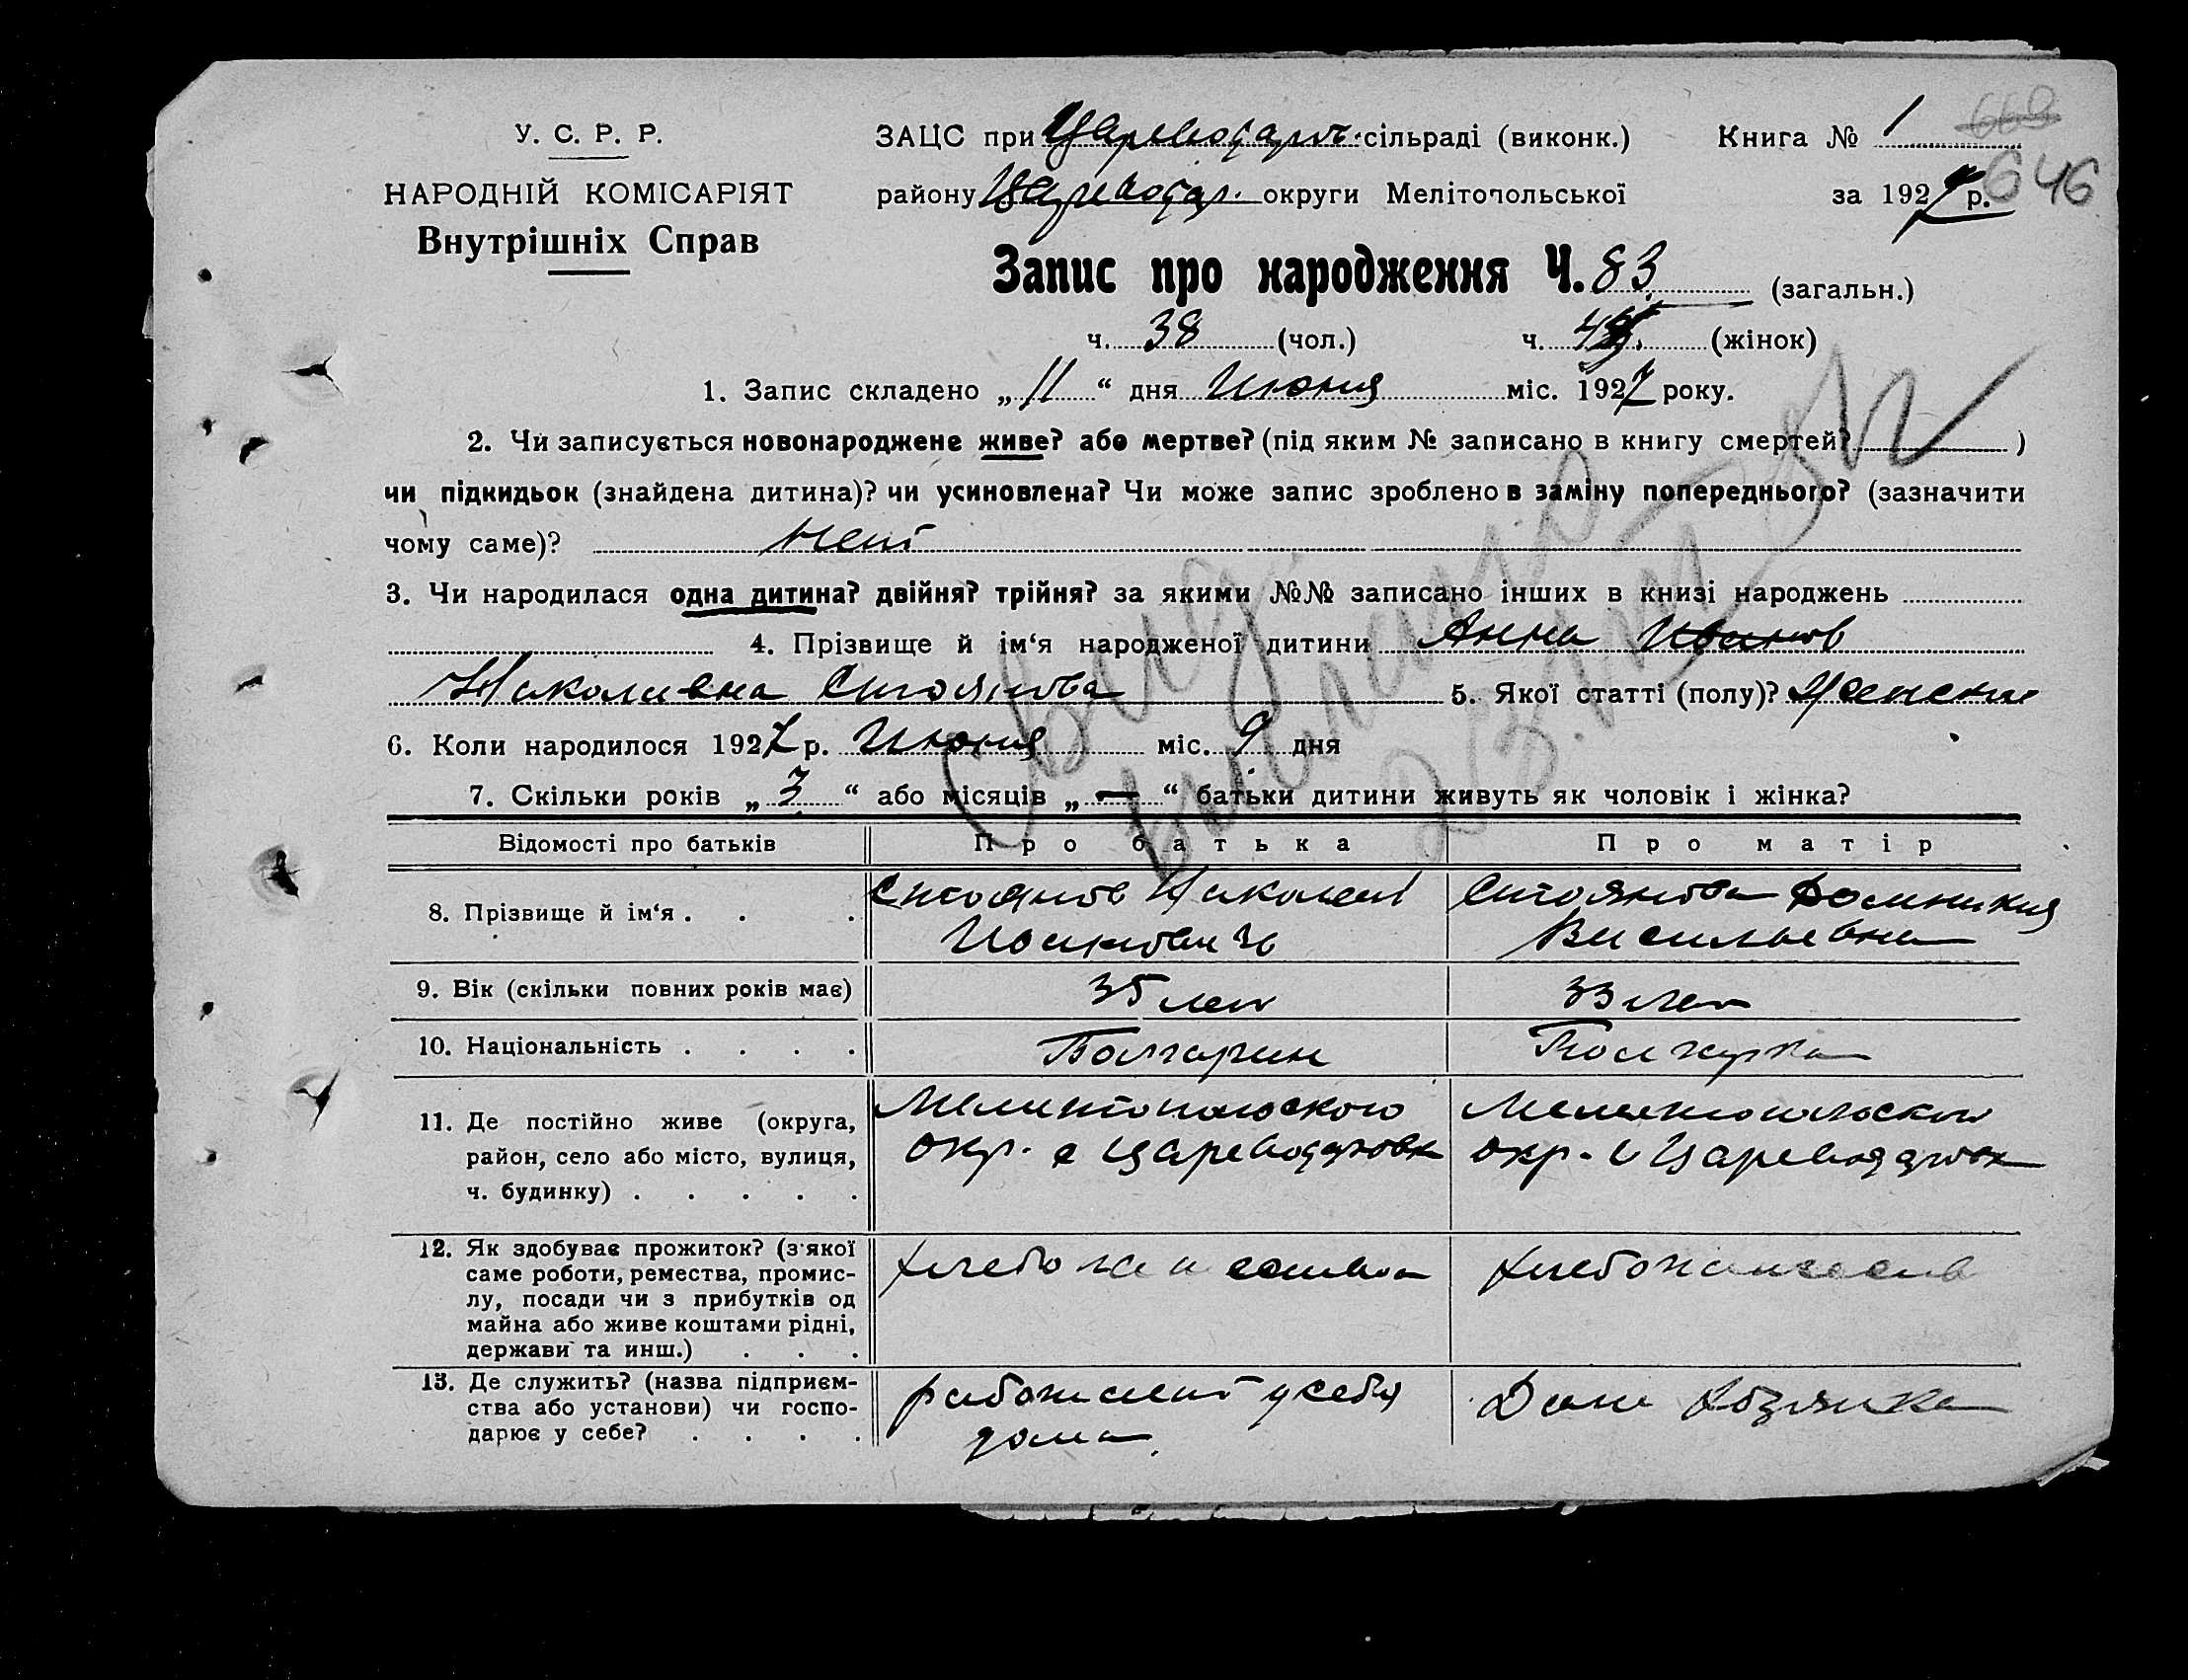 У. С. Р. Р.
НАРОДНІЙ КОМІСАРІЯТ
Внутрішніх Справ
ЗАЦС при Цареводаров. сільраді (виконк.)
району Цареводар. округи Мелітопольської
Книга № 1
669
за 1927 р.
646
Запис про народження Ч. 83 (загальн.)
ч. 38 (чол.) ч. (жінок)
1. Запис складено „11“ дня Июня міс. 1927 року.
2. Чи записується новонароджене живе? або мертве? (під яким № записано в книгу смертей? )
чи підкидьок (знайдена дитина)? чи усиновлена? Чи може запис зроблено в заміну попереднього? (зазначити
чому саме)? нет
3. Чи народилася одна дитина? двійня? трійня? за якими №№ записано інших в книзі народжень
4. Прізвище й ім‘я народженої дитини Анна Иванов
Николаевна Стоянова 5. Якої статті (полу)? Женский
6. Коли народилося 1927 р. Июня міс. 9 дня
7. Скільки років „3“ або місяців „—“ батьки дитини живуть як чоловік і жінка?
Відомості про батьків Про батька Про матір
8. Прізвище й ім‘я . . . Стоянов Николай Стоянова Домникия
Васильевна
9. Вік (скільки повних років має) 35 лет 33 лет
10. Національність . . . . Болгарин Болгарка
11. Де постійно живе (округа,
район, село або місто, вулиця,
ч. будинку) . . . . .
Мелитопольского
окр. с Цареводаровк
Мелитопольского
окр. с Цареводаровк
12. Як здобуває прожиток? (з якої
саме роботи, ремества, промис-
лу, посади чи з прибутків од
майна або живе коштами рідні,
держави та инш.) . . .
хлебопашество хлебопашеств
13. Де служить? (назва підприєм-
ства або установи) чи госпо-
дарює у себе? . . . .
работает у себя
дома
Дом хозяйка
Свид.
выдано